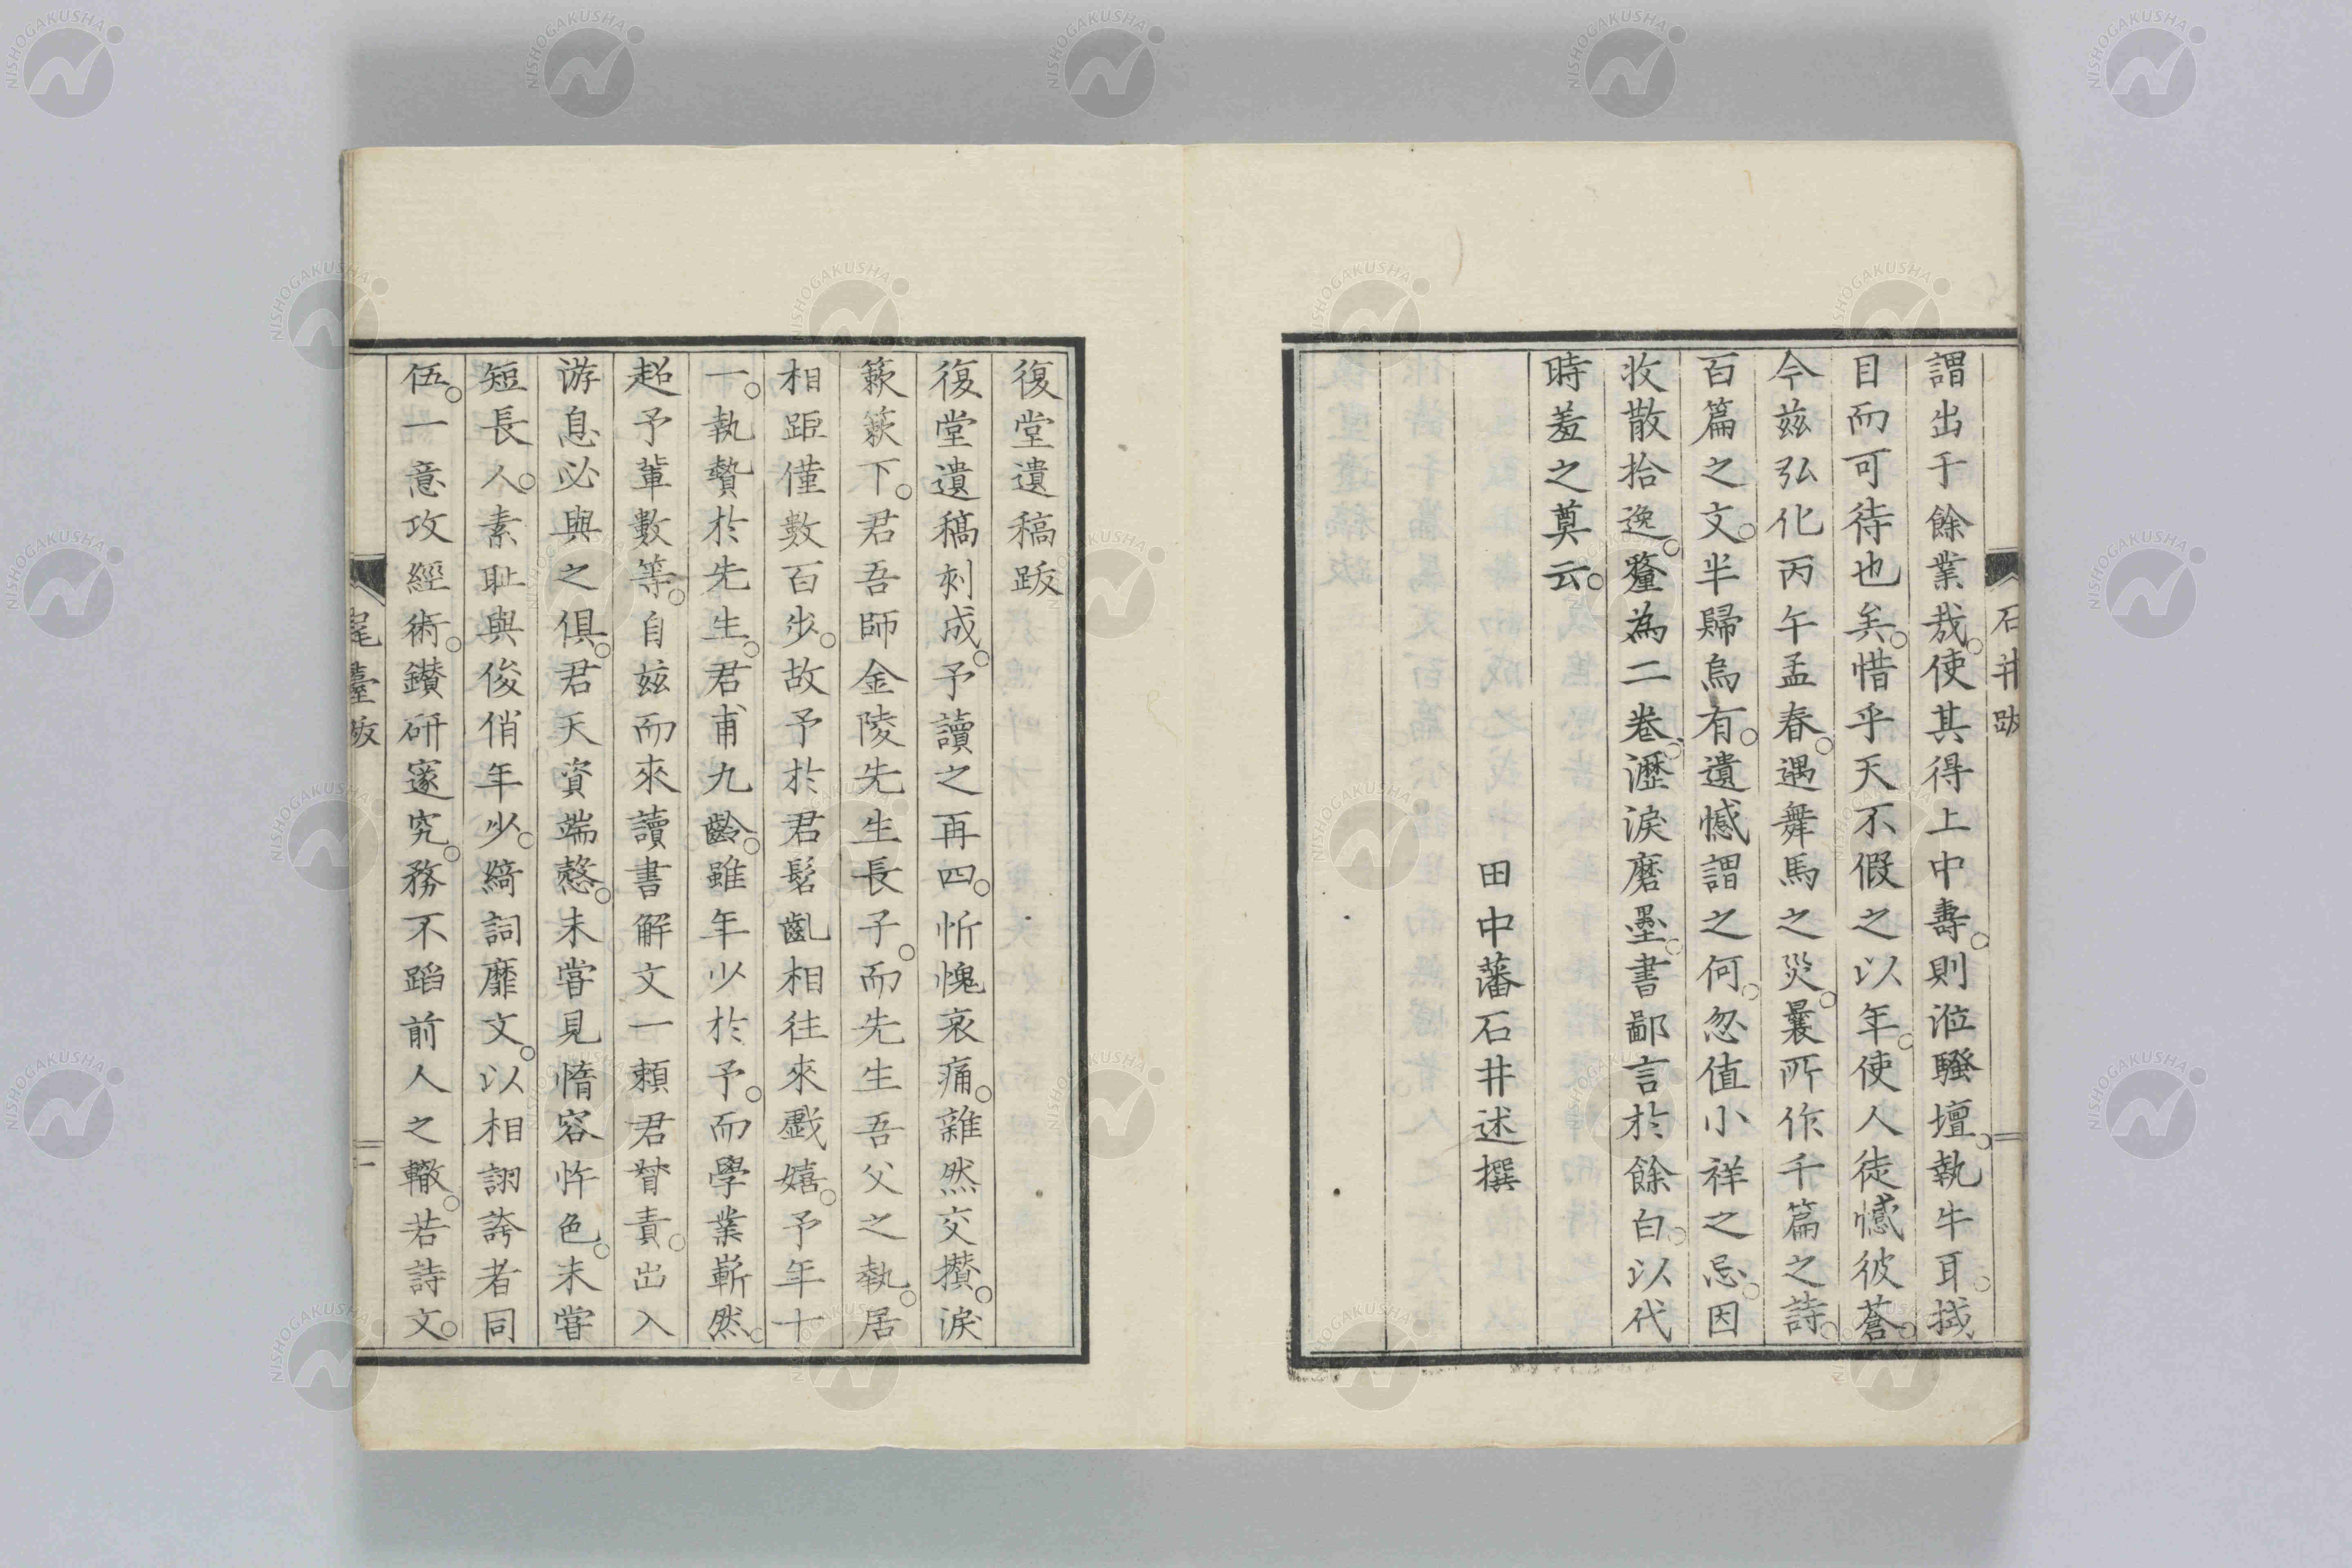 石井跋
謂出于餘業哉。使其得上中壽。則涖騷壇。執牛耳。拭
目而可待也矣。惜乎天不假之以年。使人徒憾彼蒼。
今茲弘化丙午孟春。遇舞馬之災。曩所作千篇之詩。
百篇之文。半歸烏有。遺憾謂之何。忽值小祥之忌。因
收散拾逸。釐為二卷。瀝淚磨墨。書鄙言於餘白。以代
時羞之奠云。
田中藩石井述撰
復堂遺稿跋
復堂遺稿刻成。予讀之再四。忻愧哀痛。雜然交攅。淚
簌簌下。君吾師金陵先生長子。而先生吾父之執。居
相距僅數百步。故予於君髫齓相往來戲嬉。予年十
一。執贄於先生。君甫九齡。雖年少於予。而學業嶄然。
超予輩數等。自茲而來讀書解文一賴君督責。出入
游息必與之俱。君天資端慤。未嘗見惰容忤色。未嘗
短長人。素耻與俊俏年少。綺詞靡文。以相詡誇者同
伍。一意攻經術。鑚研邃究。務不蹈前人之轍。若詩文。
尾臺跋
一
NISHOGAKUSHA